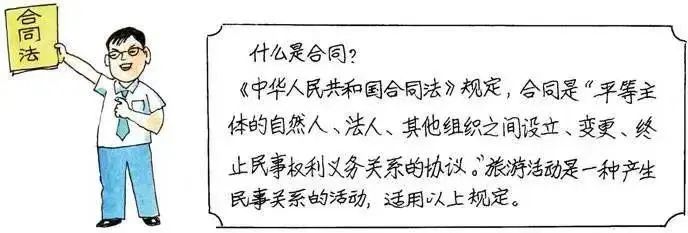 合同法
什么是合同？
《中华人民共和国合同法》规定，合同是“平等主
体的自然人、法人、其他组织之间设立、变更、终
止民事权利义务关系的协议。”旅游活动是一种产生
民事关系的活动，适用以上规定。